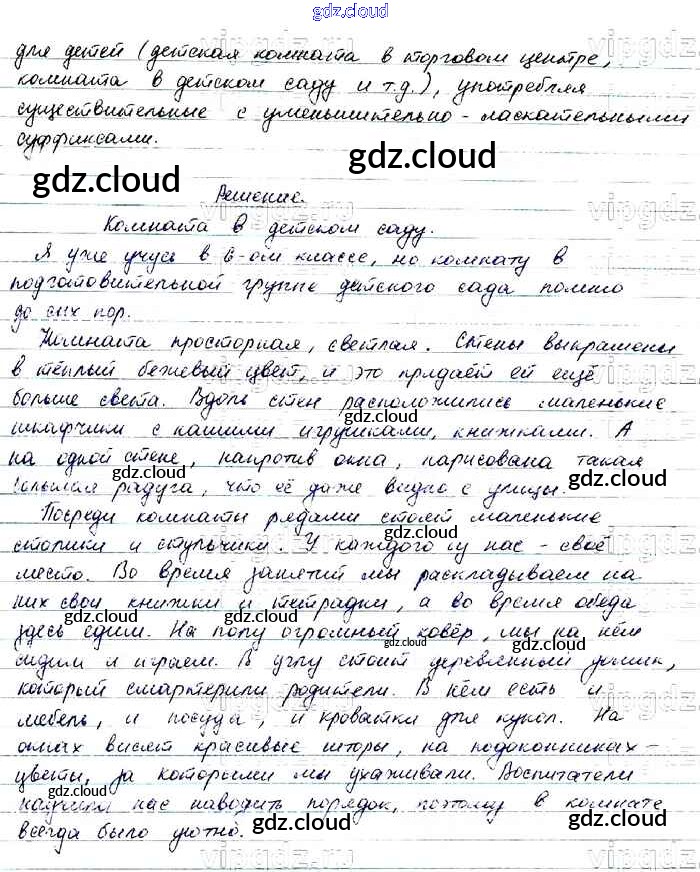 gdz.cloud
для детей (детская комната в торговом центре,
комната в детском саду и т.д.), употребляя
существительные с уменьшительно-ласкательными
суффиксами.
gdz.cloud
gdz.cloud
Решение.
Комната в детском саду.
Я уже учусь в 6-ом классе, но комнату в
подготовительной группе детского сада помню
до сих пор.
Комната просторная, светлая. Стены выкрашены
в тёплый бежевый цвет, и это придаёт ей ещё
больше света. Вдоль стен расположились маленькие
шкафчики с нашими игрушками, книжками. А
на одной стене, напротив окна, нарисована такая
большая радуга, что её даже видно с улицы.
Посреди комнаты рядами стоят маленькие
столики и стульчики. У каждого из нас - своё
место. Во время занятий мы раскладываем на
них свои книжки и тетрадки, а во время обеда
здесь едим. На полу огромный ковёр, мы на нём
сидим и играем. В углу стоит деревянный домик,
который смастерили родители. В нём есть и
мебель, и посуда, и кроватки для кукол. На
окнах висят красивые шторы, на подоконниках -
цветы, за которыми мы ухаживали. Воспитатели
научили нас наводить порядок, поэтому в комнате
всегда было уютно.
gdz.cloud